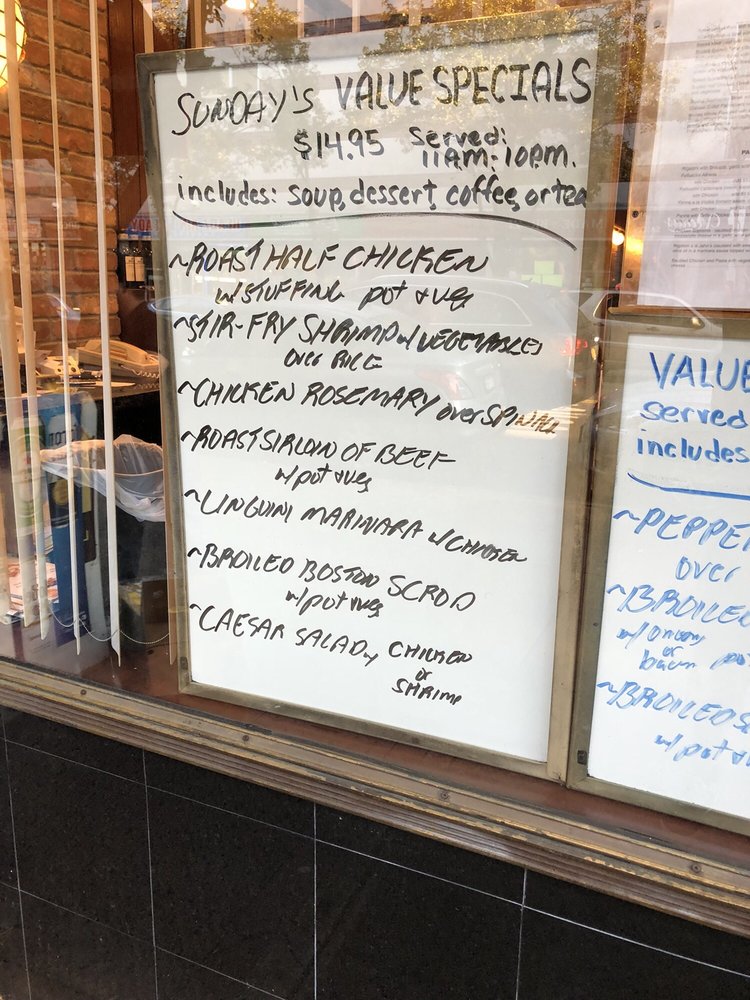 SUNDAY'S VALUE SPECIALS
$14.95 Served:
11AM-10P.M.
includes: soup, dessert, coffee, or tea
~ROAST HALF CHICKEN
w/STUFFING pot & veg
~STIR-FRY SHRIMP w/ VEGETABLES
OVER RICE
~CHICKEN ROSEMARY over SPINACH
~ROAST SIRLOIN OF BEEF
w/pot & veg
~LINGUINI MARINARA w/CHICKEN
~BROILED BOSTON SCROD
w/pot & veg
~CAESAR SALAD w/ CHICKEN
or
SHRIMP
VALUE
served
includes
~PEPPE
over
~BROILED
w/ onions
or
bacon
~BROILED
w/ pot &